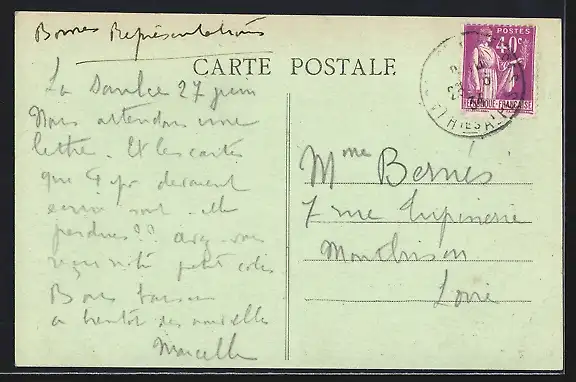 Bonnes Représentations
CARTE POSTALE
POSTES
40c
RÉPUBLIQUE FRANÇAISE
La 27 juin
Nous attendons une
lettre. Et les cartes
que devaient
sont elle
perdues?? avez-vous
petit colis
Bons baisers
a bientot des nouvelles
Marcelle
Mme Bernès
7 rue Tupinerie
Montbrison
Loire